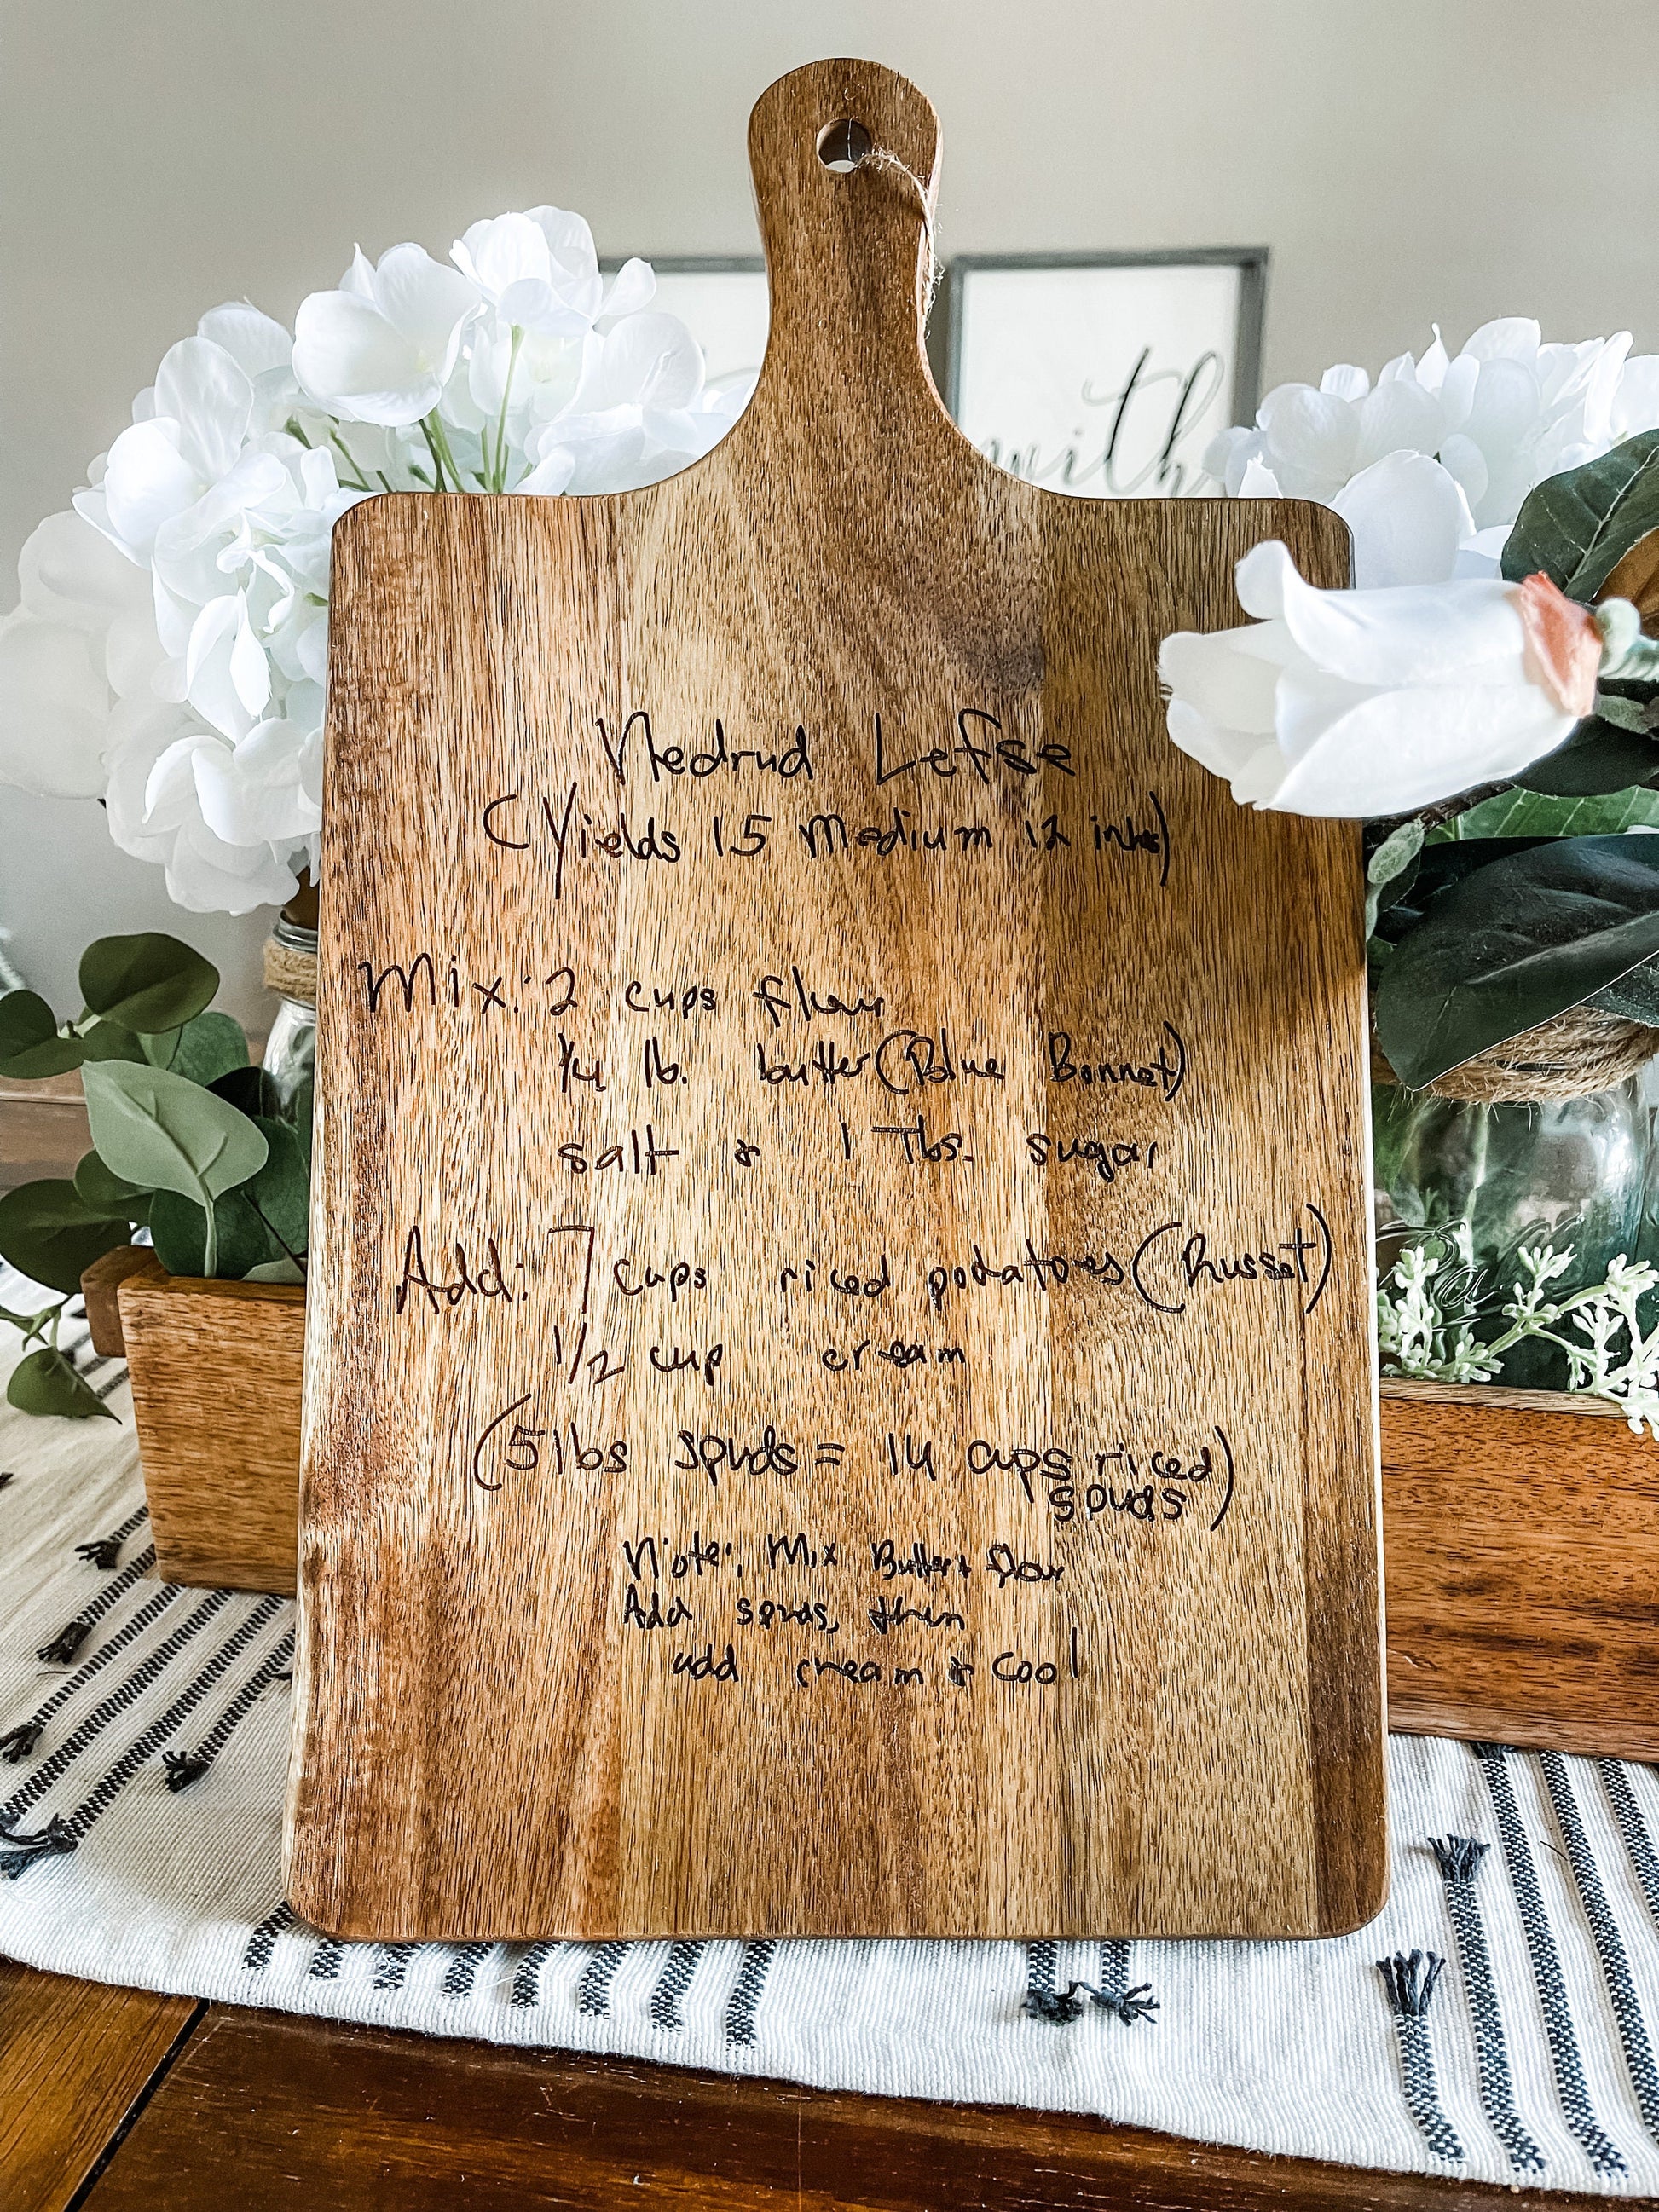 with
Nedrud Lefse
(Yields 15 Medium 12 inches)
Mix: 2 cups flour
1/4 lb. butter (Blue Bonnet)
salt & 1 Tbs. sugar
Add: 7 cups riced potatoes (Russet)
1/2 cup cream
(5 lbs spuds = 14 cups riced
spuds)
Note: Mix Butter + flour
Add spuds, then
add cream & cool